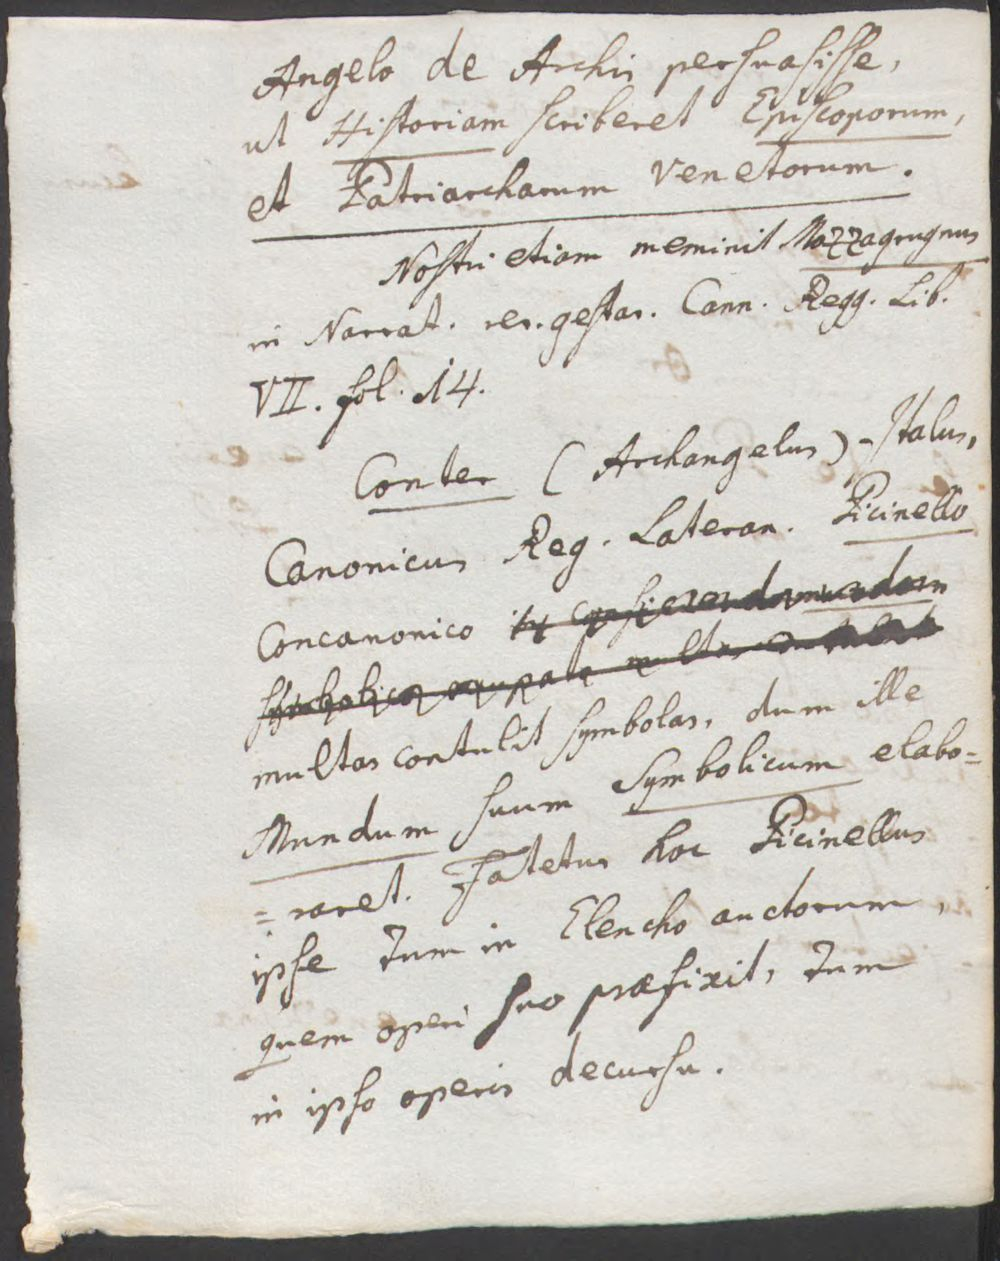 Angelo de Archii persuasisse,
ut Historiam scriberet Episcoporum,
et Patriarcharum Venetorum.
Nostri etiam meminit Mazzagrugnus
in Narrat. rer. gestar. Cann. Regg. Lib.
VII. fol. 14.
Conter (Archangelus) Italus,
Canonicus Reg. Lateran. Picinello
Concanonico in conficiendo mundo
symbolico occupato multas
multas contulit symbolas, dum ille
Mundum suum symbolicum elabo=
=raret. Fatetur hoc Picinellus
ipse tum in Elencho auctorum,
quem operi suo præfixit, tum
in ipso operis decursu.